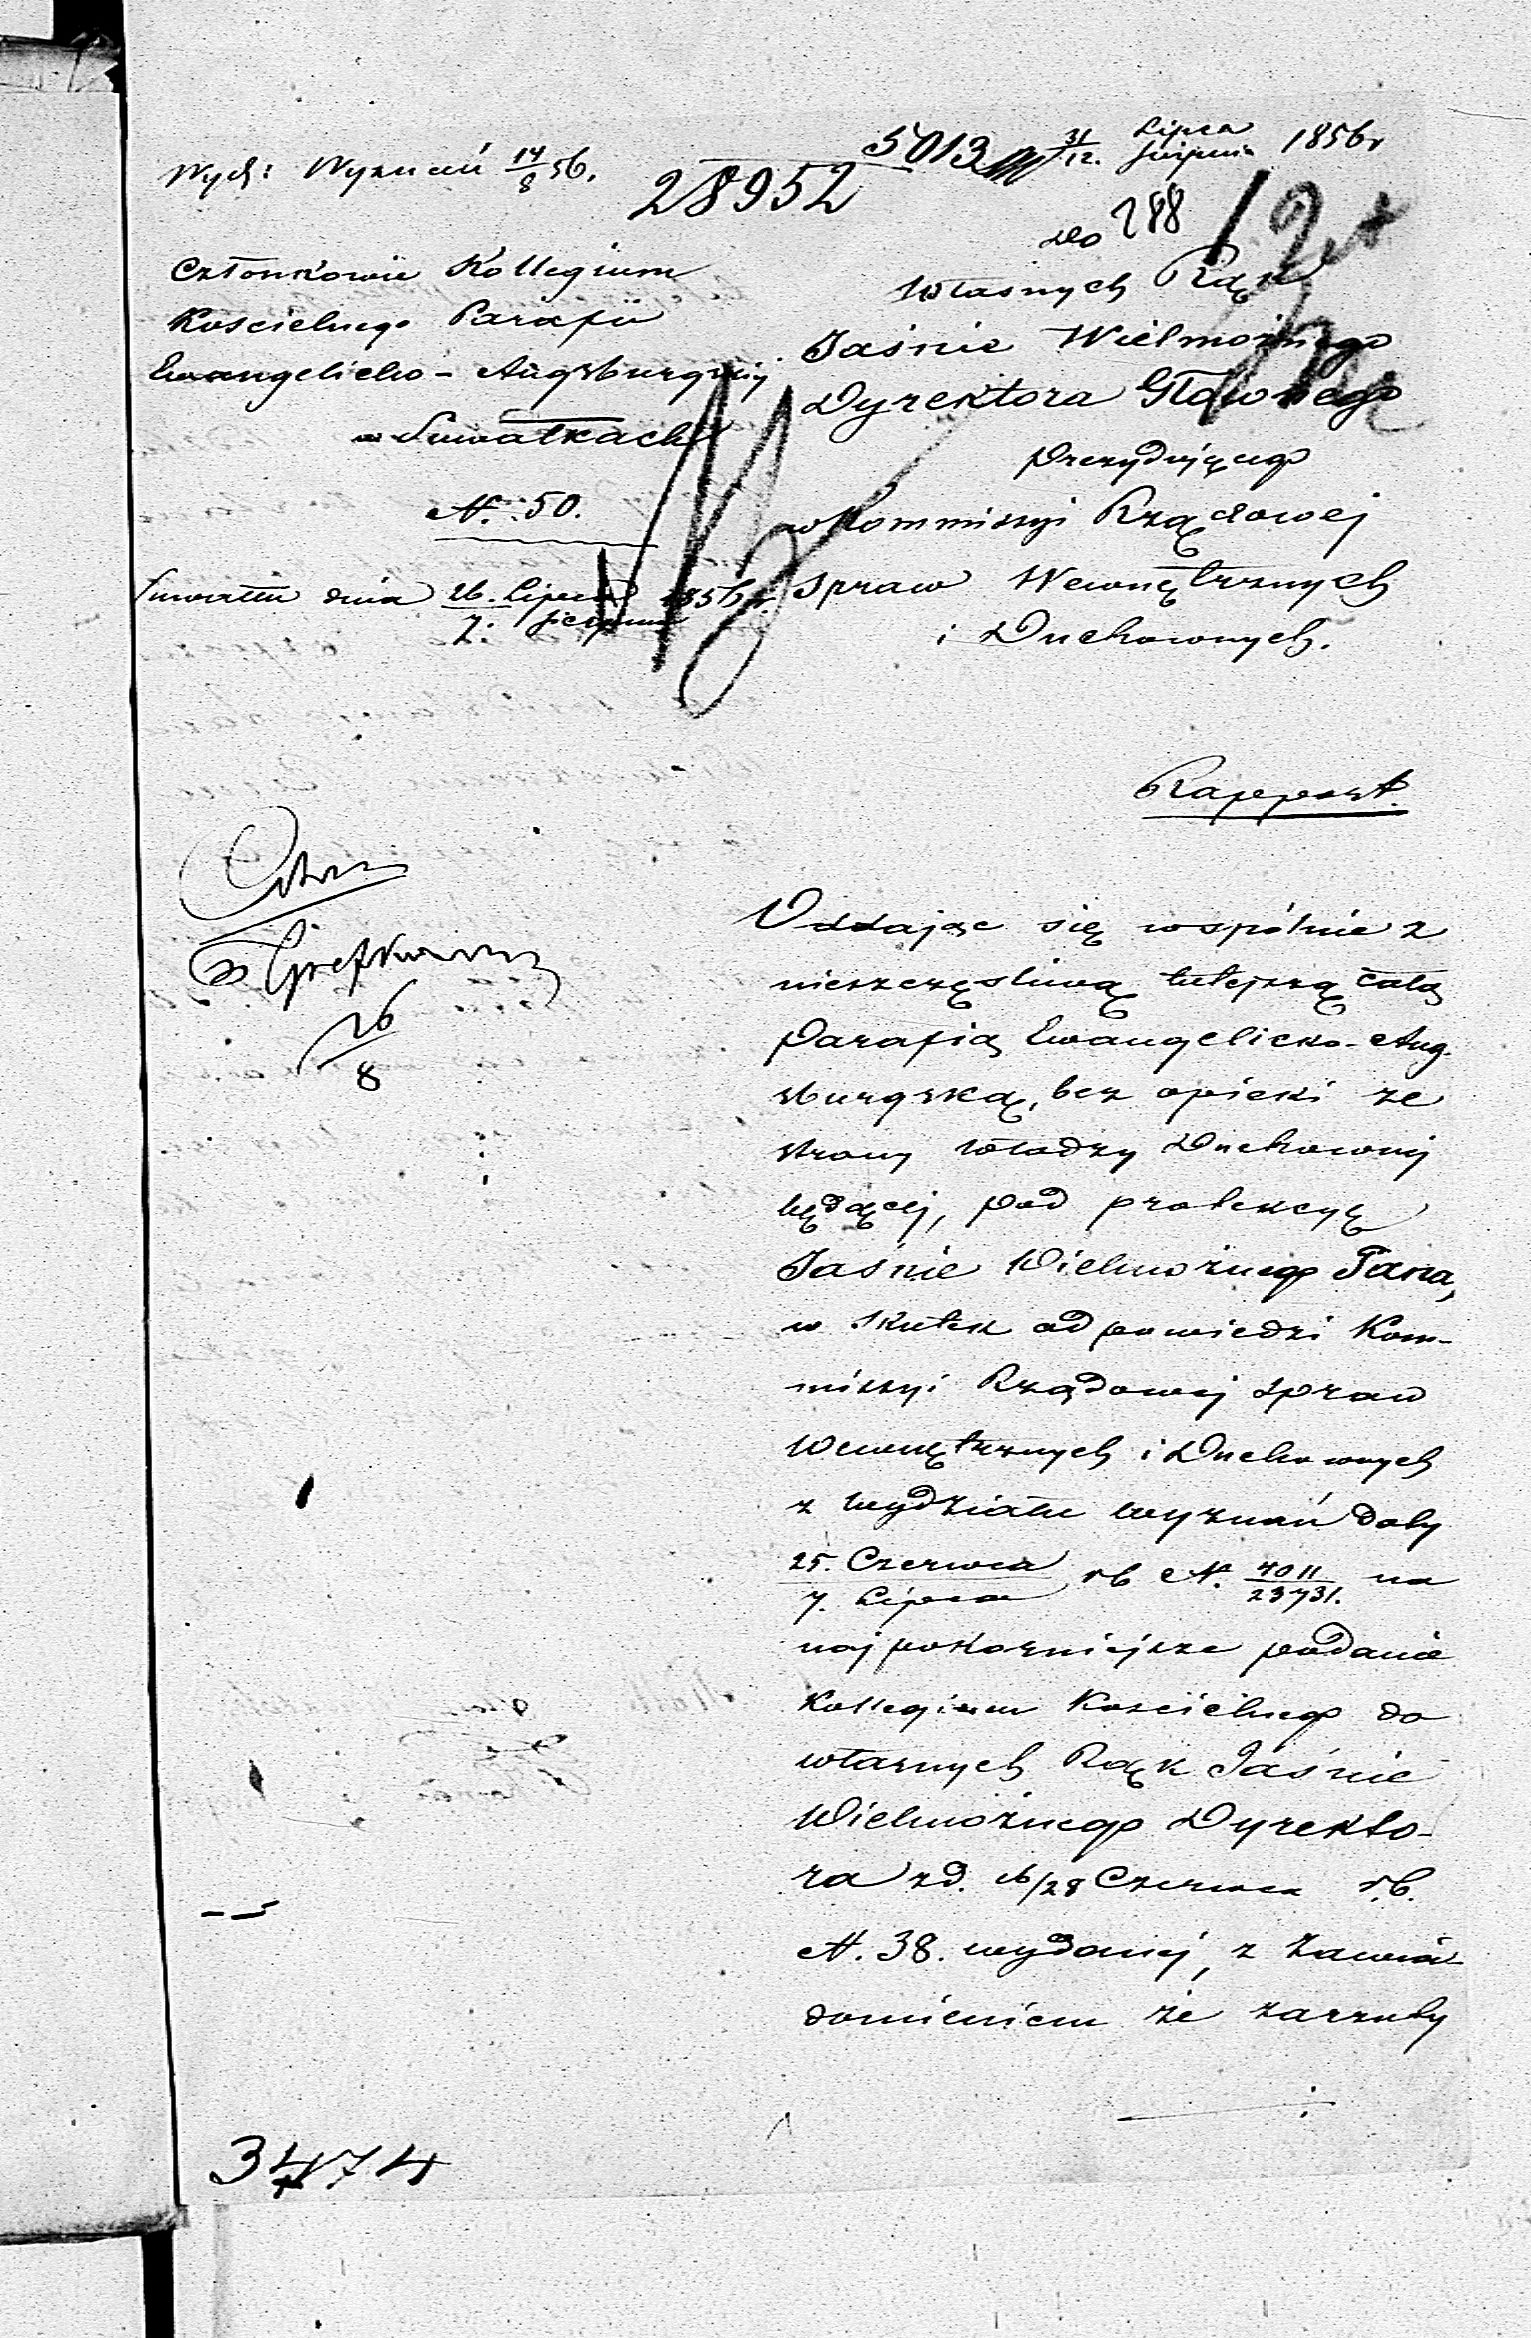 Wydz: Wyznań 14/8 56.
5013 31/12. Lipca/Sierpnia 1856 r
28952
288
Członkowie Kollegium
Koscielnego Parafii
Ewangelicko-Augsburgskiej
w Suwałkach
N. 50.
Suwałki dnia 26. Lipca/7. Sierpnia 1856 r.
do
Własnych Rąk
Jaśnie Wielmożnego
Dyrektora Głównego
Prezydującego
w Kommissyi Rządowej
Spraw Wewnętrznych
i Duchownych.
Rapport.
26/8
Oddając się wspólnie z
nieszczęsliwą tutejszą całą
Parafią Ewangelicko-Aug-
sburgską, bez opieki ze
strony Władzy Duchownej
będącej, pod protekcyę
Jaśnie Wielmożnego Pana,
w skutek odpowiedzi Kom-
missyi Rządowej Spraw
Wewnętrznych i Duchownych
z Wydziału Wyznań daty
25. Czerwca/7. Lipca rb N. 4011/23731. na
najpokorniejsze podanie
Kollegium Koscielnego do
własnych Rąk Jaśnie
Wielmożnego Dyrekto-
ra zd. 16/28 Czerwca r.b.
N. 38. wydanej, z zawia-
domieniem że zarzuty
3474